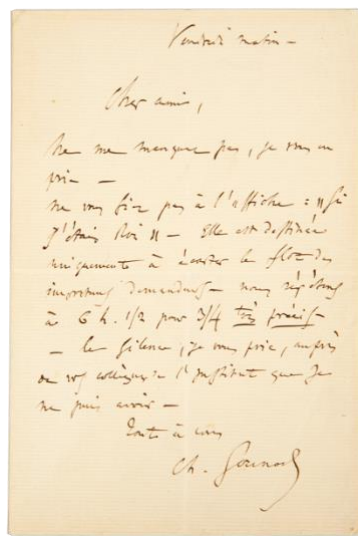 Vendredi matin –
Cher ami,
Ne me manquez pas, je vous en
prie –
ne vous fiez pas à l'affiche : "Si
j'étais Roi" – Elle est destinée
uniquement à écarter le flot des
importuns demandeurs – nous répétons
à 6 h. 1/2 pour 3/4 très précis –
– le silence, je vous prie, auprès
de vos collègues de l'Institut que je
ne puis avoir –
Tout à vous
Ch. Gounod